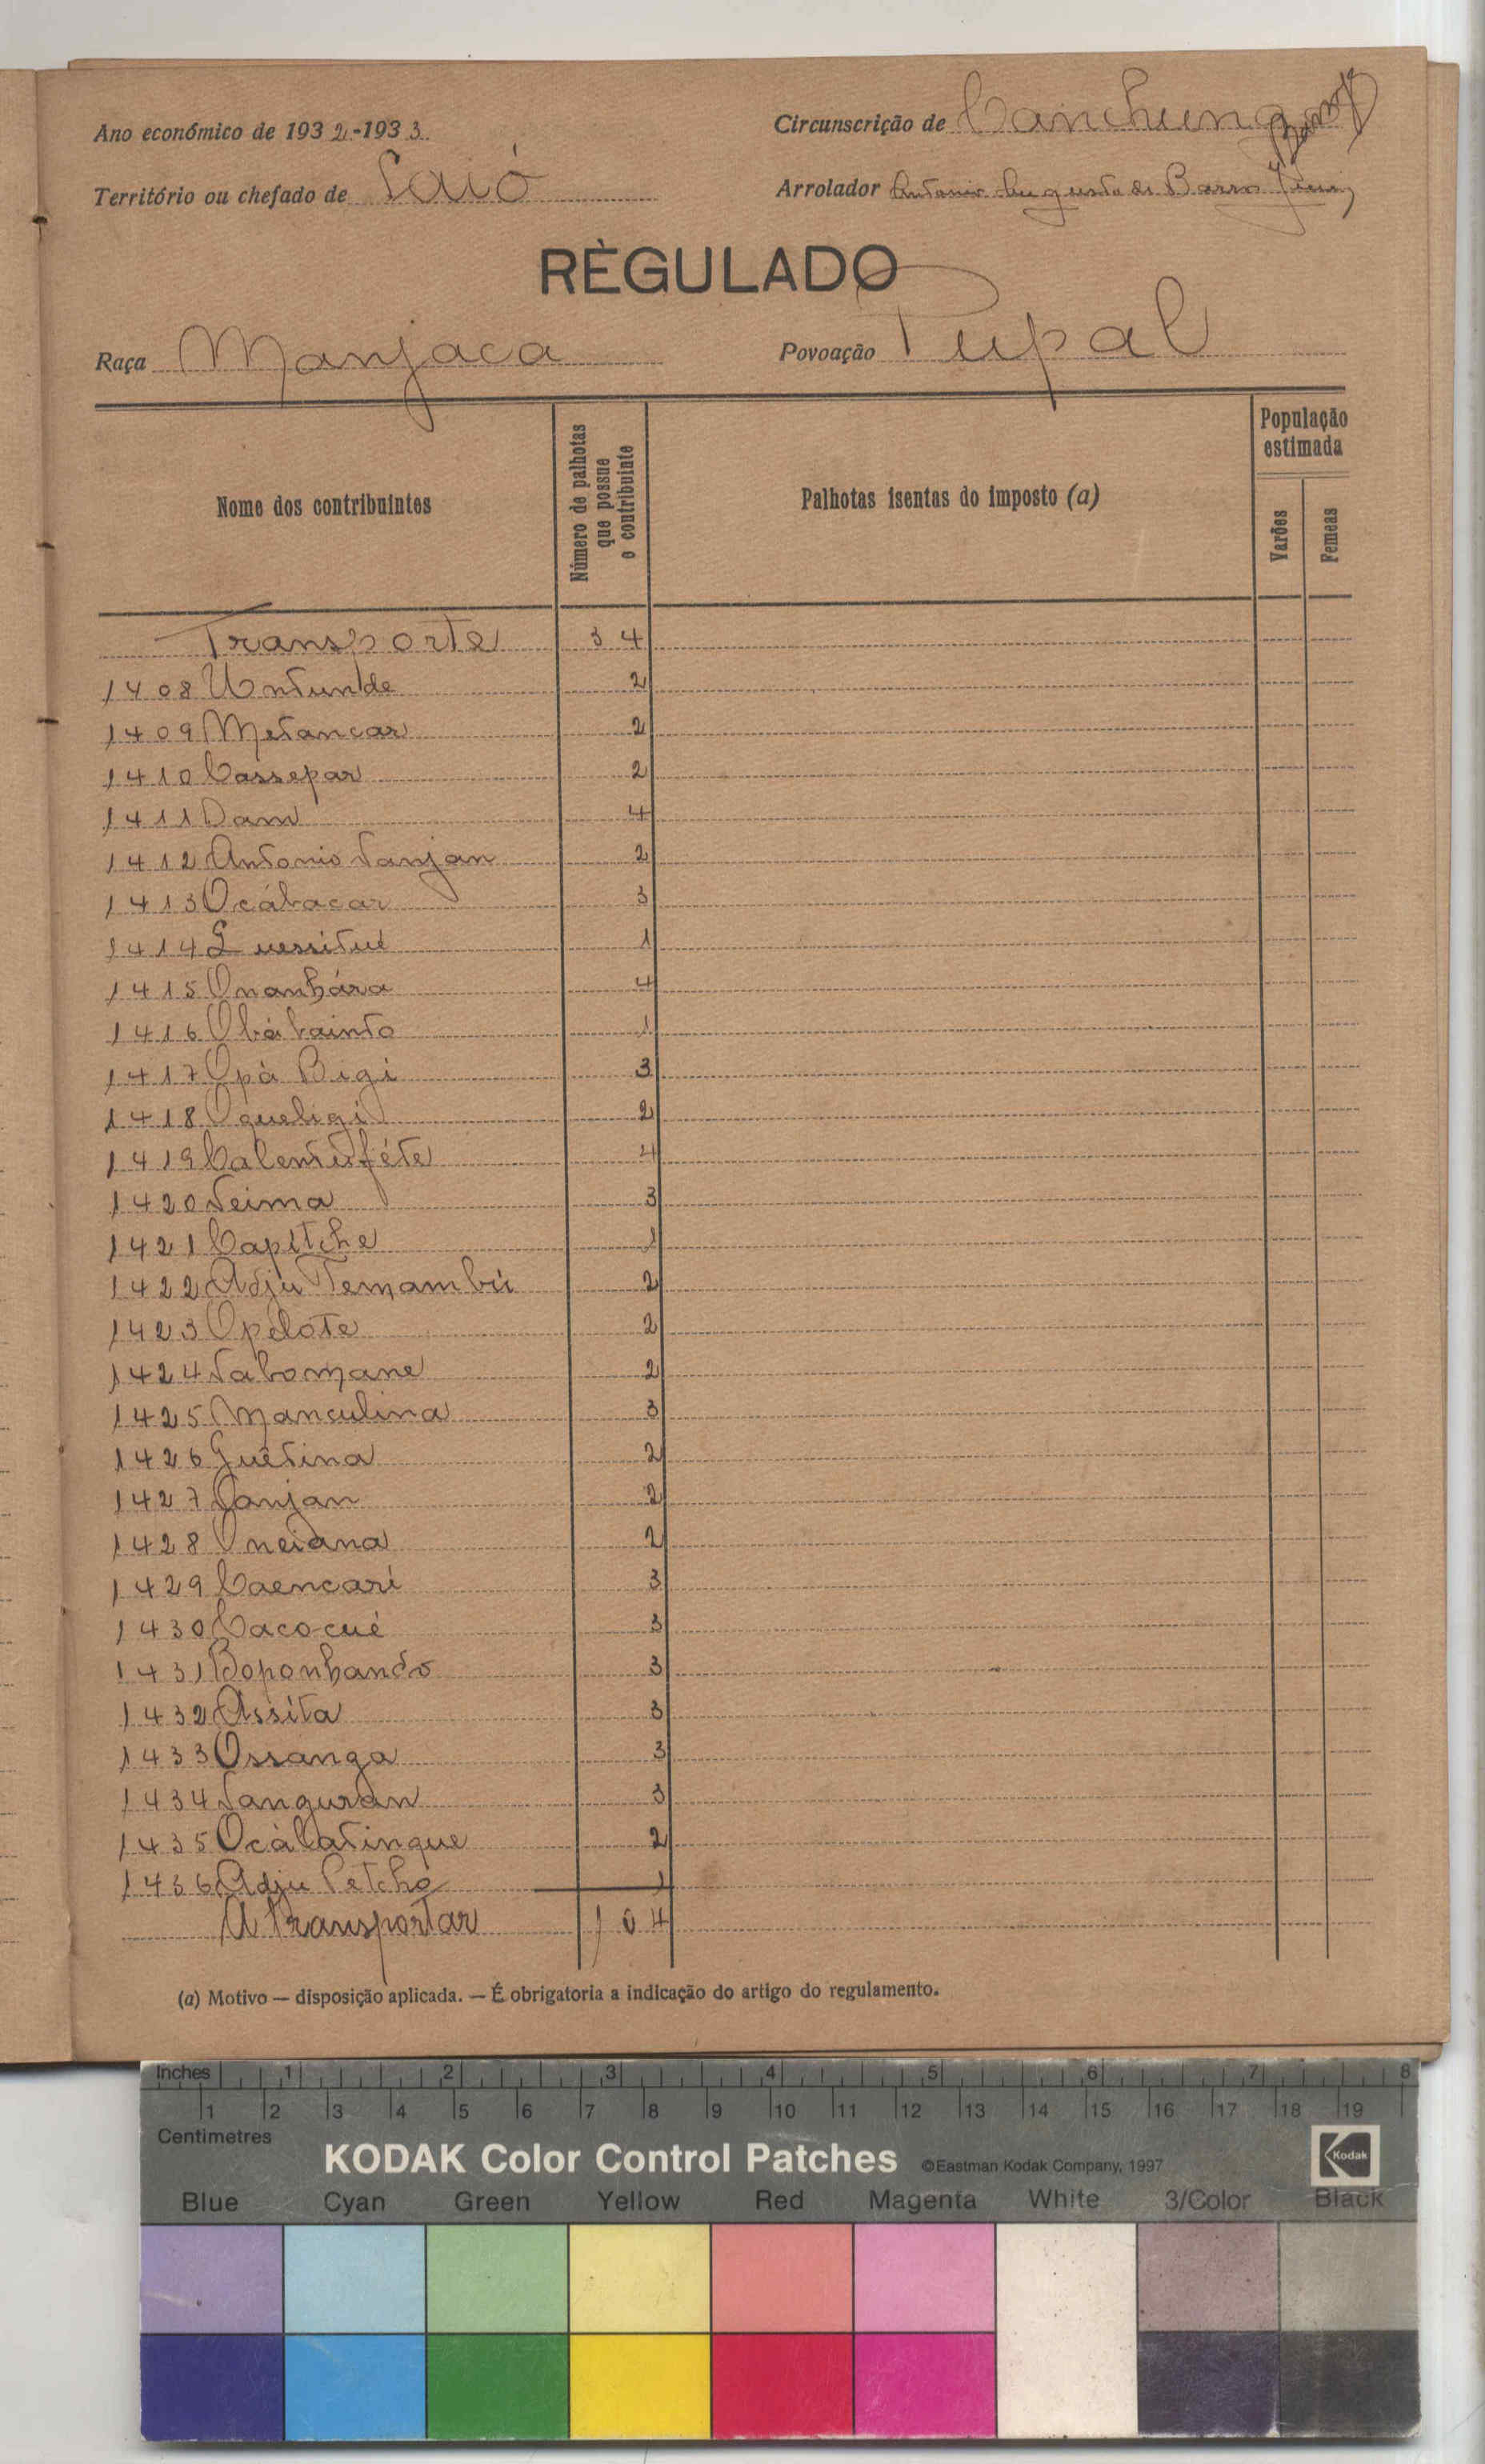 Ano económico de 1932-1933
Circunscrição de Canchungo
Território ou chefado de Caió
Arrolador Antonio Augusto de Barros
RÈGULADO
Raça Manjaca
Povoação Pupal
Nome dos contribuintes
Número de palhotas que possue o contribuinte
Palhotas isentas do imposto (a)
População estimada
Varões
Femeas
Transporte 34
1408 Untunlde 2
1409 Metancar 2
1410 Cassepar 2
1411 Dam 4
1412 Antonio Sanjan 2
1413 Ocábacar 3
1414 Quessitué 1
1415 Onanhára 4
1416 Obábainto 1
1417 Opà Bigi 3
1418 Oqueligi 2
1419 Calentuféte 4
1420 Seima 3
1421 Capitche 1
1422 Adju Ternambú 2
1423 Opelote 2
1424 Sabomane 2
1425 Manculina 3
1426 Guêtina 2
1427 Sanjan 2
1428 Oneiana 2
1429 Caencari 3
1430 Cacocué 3
1431 Boponhando 3
1432 Assita 3
1433 Ossanga 3
1434 Sanguran 3
1435 Ocàlatinque 2
1436 Adju Petcho 1
A transportar 104
(a) Motivo — disposição aplicada. — É obrigatoria a indicação do artigo do regulamento.
Inches 1 2 3 4 5 6 7 8
1 2 3 4 5 6 7 8 9 10 11 12 13 14 15 16 17 18 19
Centimetres
KODAK Color Control Patches ©Eastman Kodak Company, 1997 Kodak
Blue Cyan Green Yellow Red Magenta White 3/Color Black